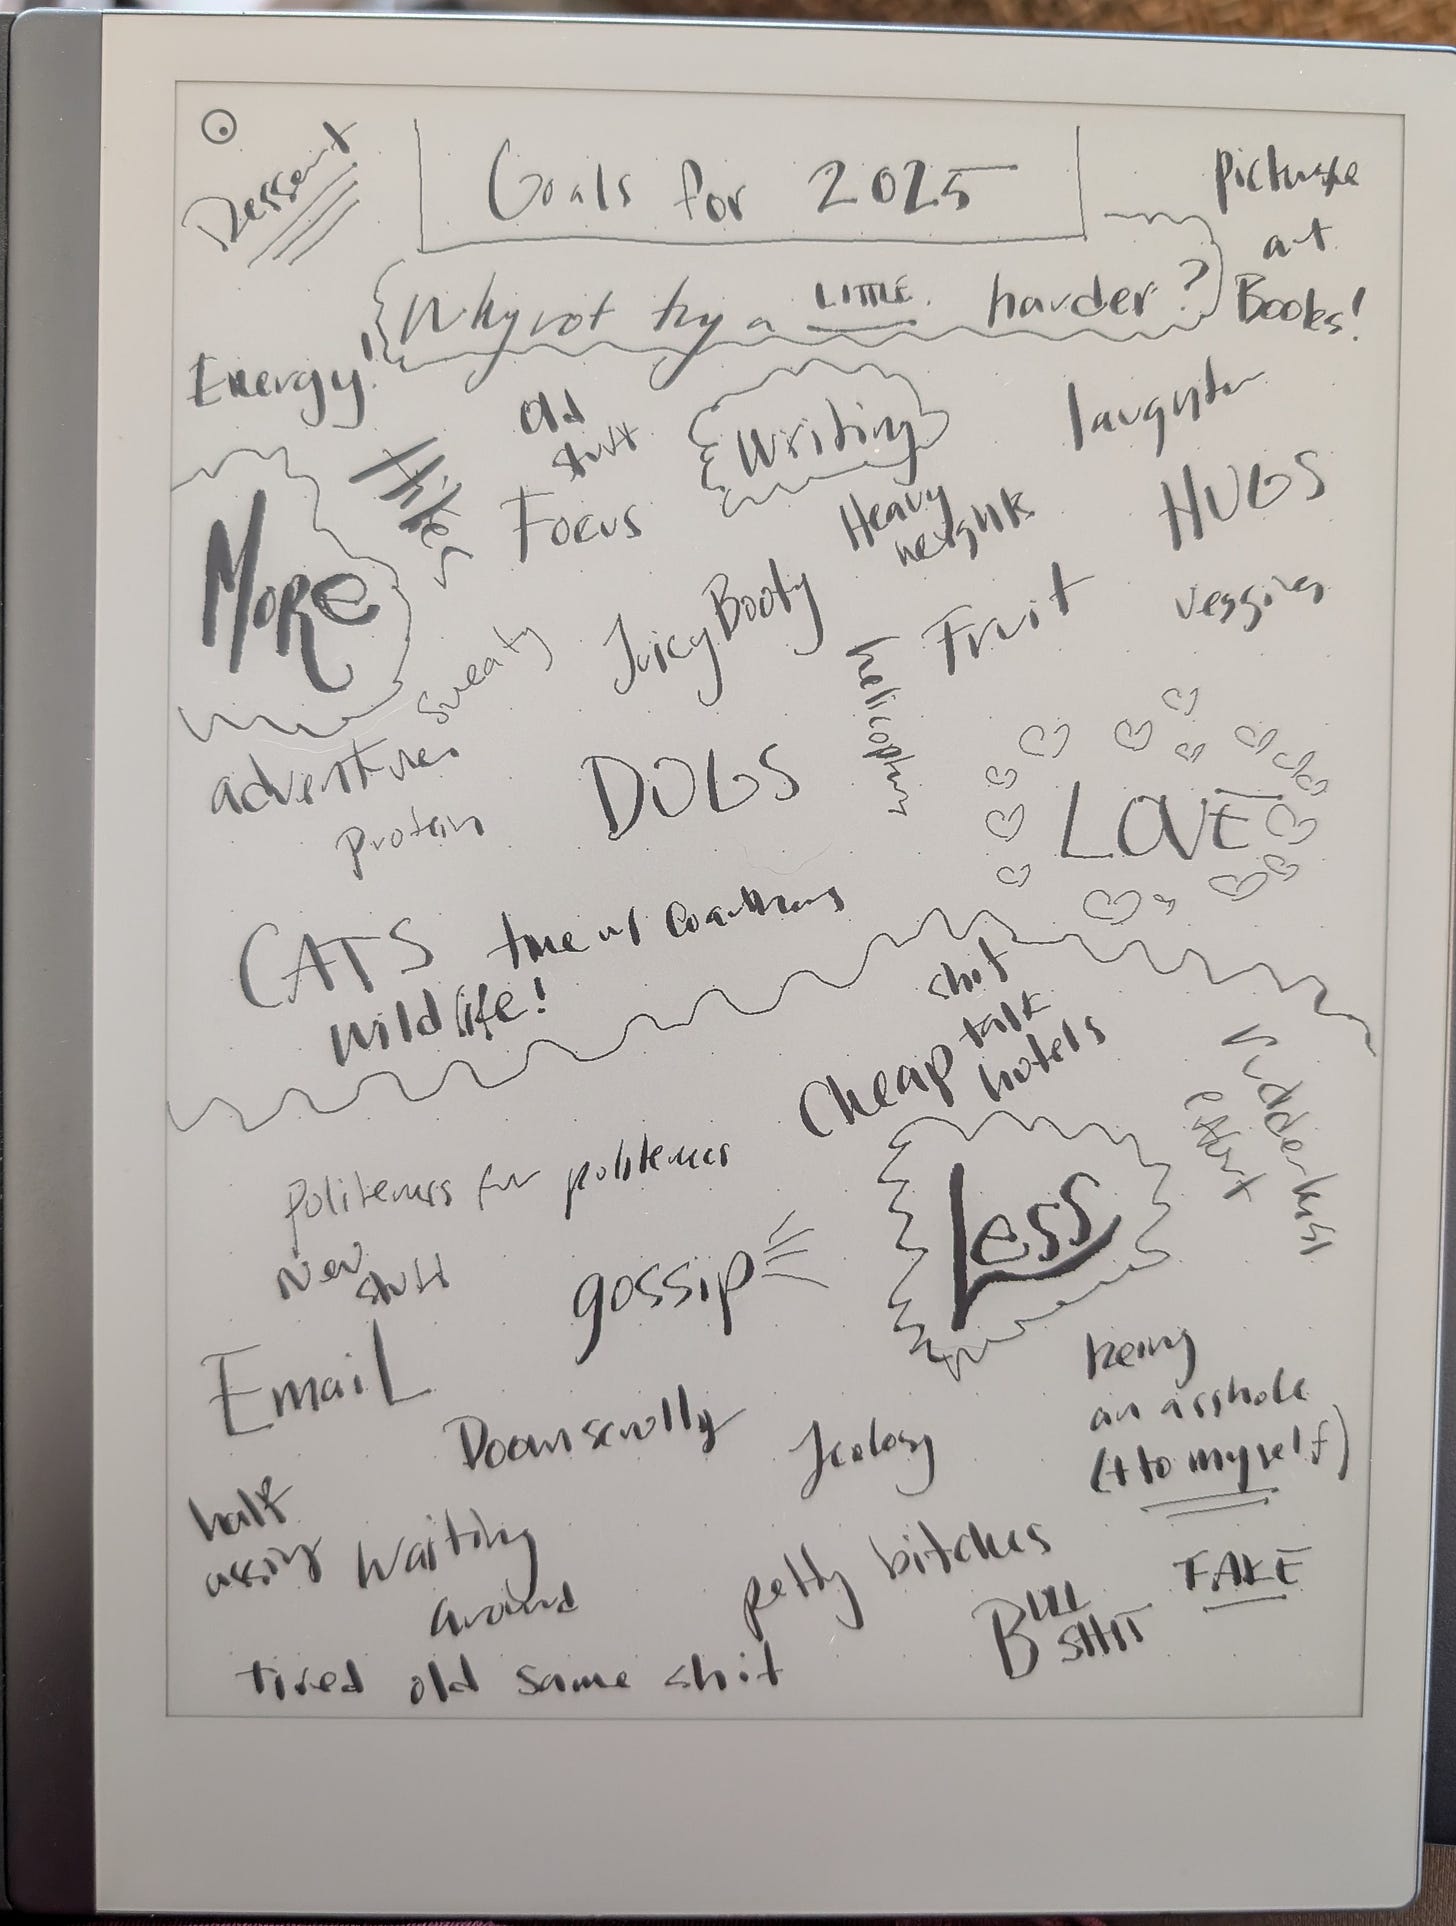 Dessert
Goals for 2025
Why not try a LITTLE harder?
picture
art
Books!
Energy!
Hikes
old
stuff
Focus
Writing
laughter
HUGS
Heavy
weights
MORE
sweaty
Juicy Booty
helicopters
Fruit
veggies
adventures
protein
DOGS
LOVE
CATS
time w/
wildlife!
shit
talk
Cheap hotels
effort
Politeness for politeness
New
stuff
gossip
Less
Email
Doomscrolly
Jealosy
being
an asshole
(+ to myself)
half
assing
waiting
around
petty bitches
BULL
SHIT
FAKE
tired old same shit